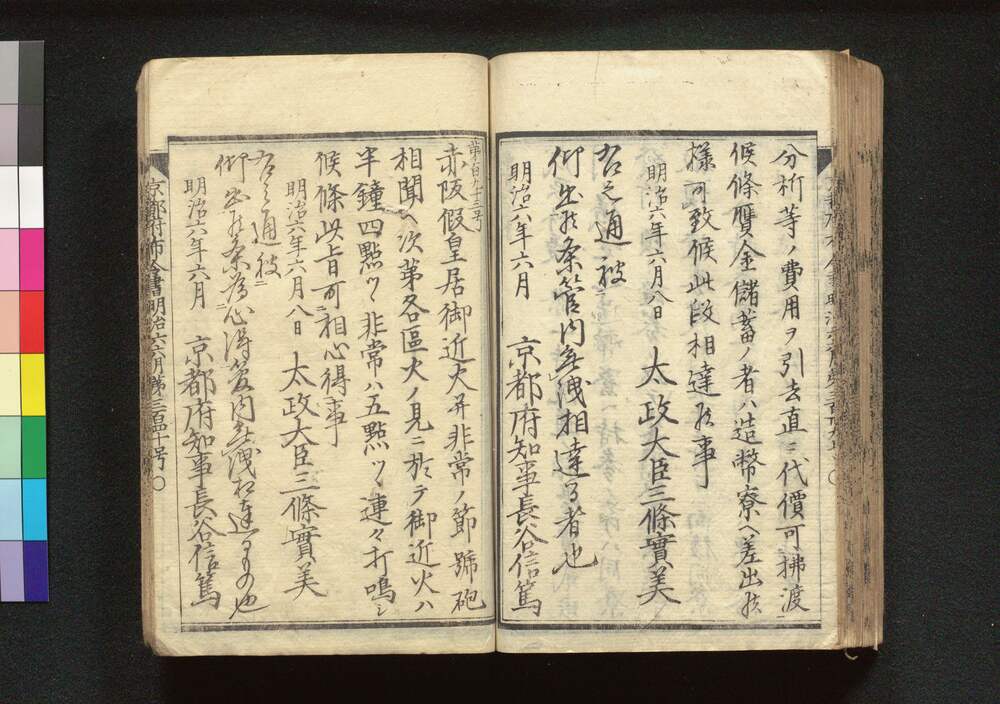 分析等ノ費用ヲ引去直ニ代價可拂渡
候條贋金儲蓄ノ者ハ造幣寮ヘ差出候
樣可致候此段相達候事
明治六年六月八日 太政大臣三條實美
右之通被
仰出候条管内無洩相達る者也
明治六年六月 京都府知事長谷信篤
第百九十三号
赤阪假皇居御近火并非常ノ節號砲
相聞ヘ次第各區火ノ見ニ於テ御近火ハ
半鐘四點ツヽ非常ハ五點ツヽ連々打鳴シ
候條此旨可相心得事
明治六年六月八日 太政大臣三條實美
右之通被
仰出候条為心得管内無洩相達るもの也
明治六年六月 京都府知事長谷信篤
京都府布令書明治六六月第三百四十号